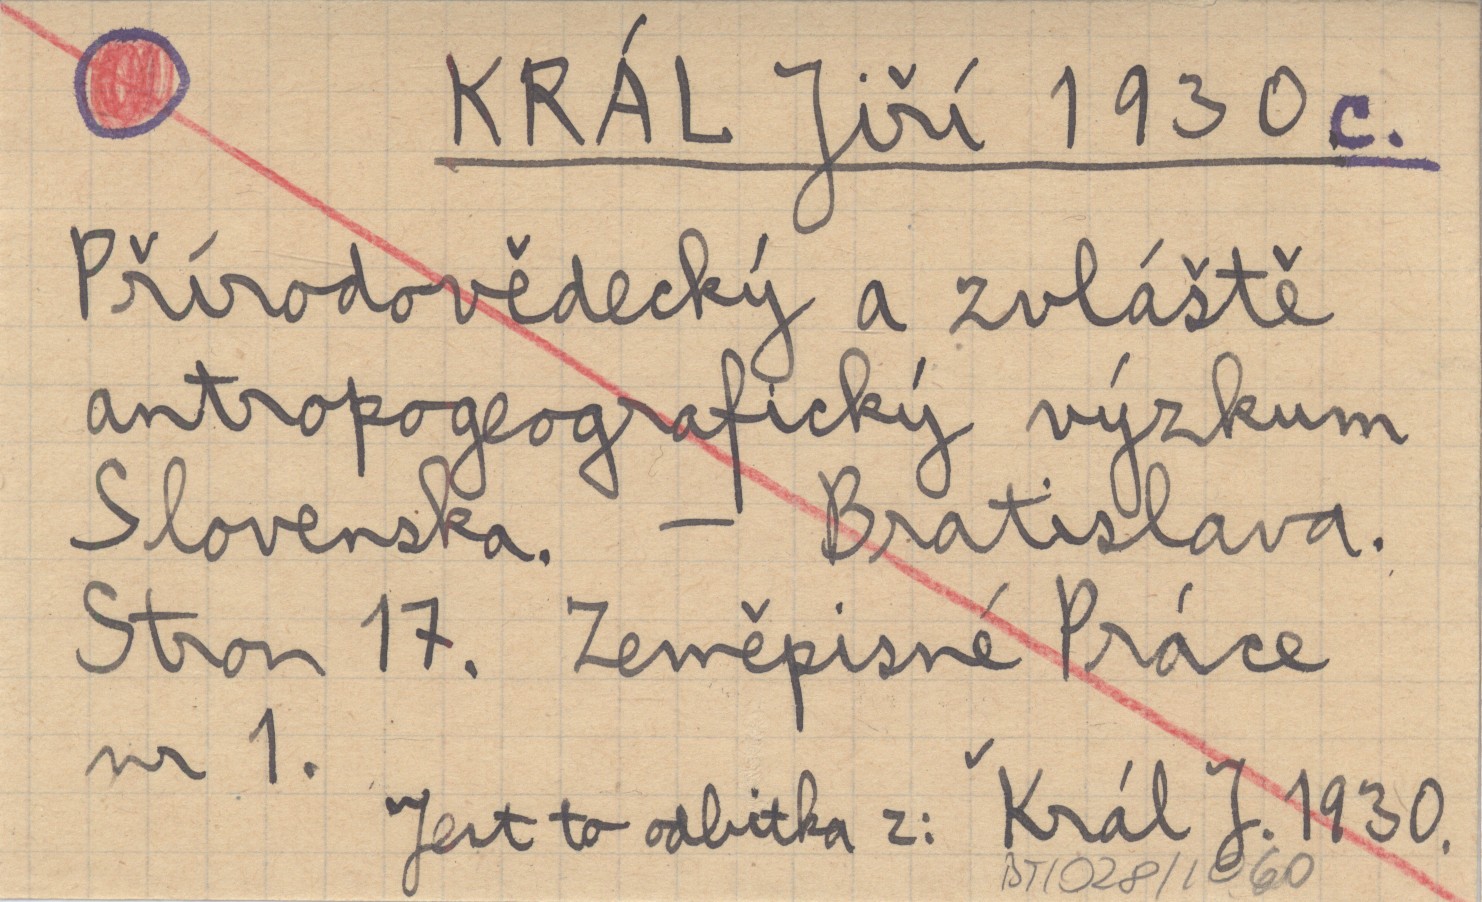 KRÁL Jiří 1930c.
Přírodovědecký a zvláště
antropogeografický výzkum
Slovenska. — Bratislava.
Stron 17. Zeměpisné Práce
nr 1.
Jest to odbitka z: Král J. 1930.